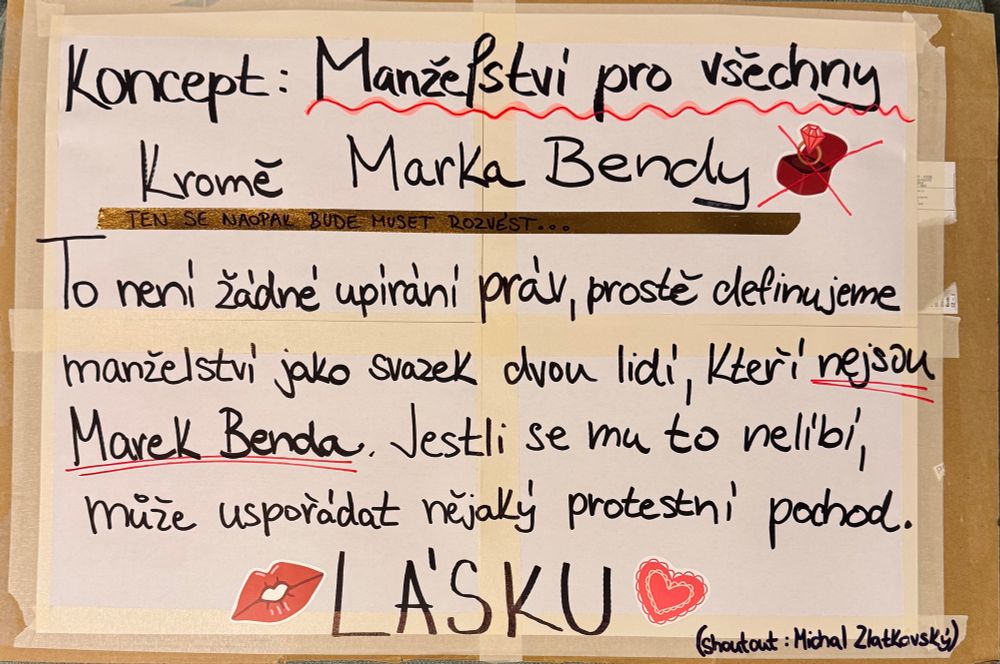 Koncept: Manželství pro všechny
Kromě Marka Bendy
TEN SE NAOPAK BUDE MUSET ROZVÉST...
To není žádné upírání práv, prostě definujeme
manželství jako svazek dvou lidí, kteří nejsou
Marek Benda. Jestli se mu to nelíbí,
může uspořádat nějaký protestní pochod.
LÁSKU
(shoutout: Michal Zlatkovský)